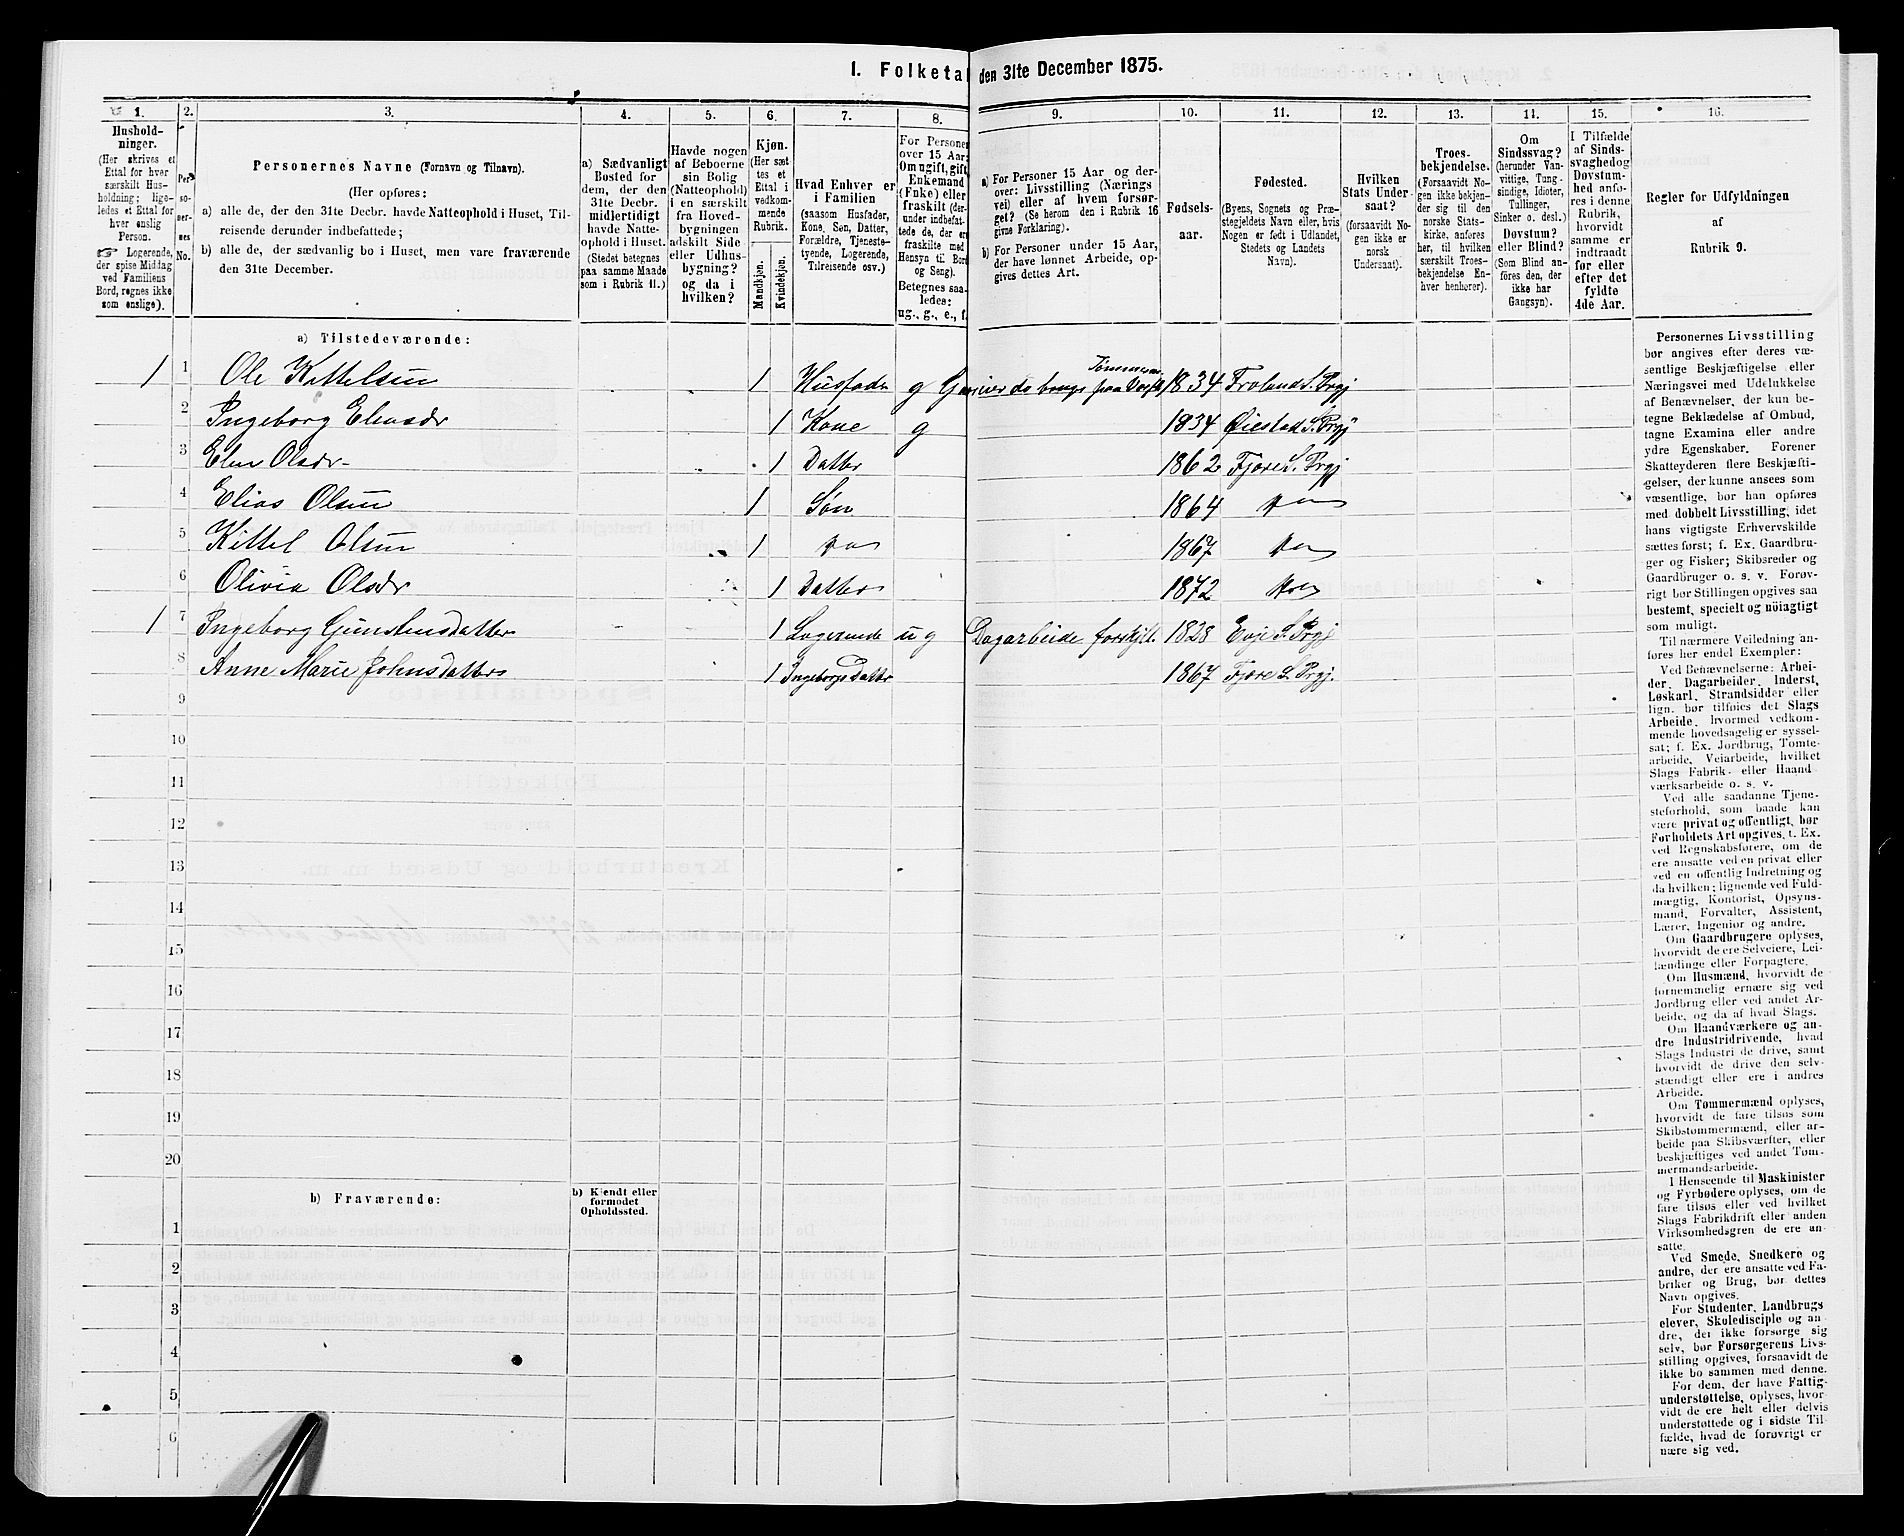 1. Folketal den 31te December 1875.
1. 2. 3. 4. 5. 6. 7. 8. 9. 10. 11. 12. 13. 14. 15. 16.
Hushold-
ninger.
(Her skrives et
Ettal for hver
særskilt Hus-
holdning; lige-
ledes et Ettal for
hver enslig
Person.
☞ Logerende,
der spise Middag
ved Familiens
Bord, regnes ikke
som enslige).
Per
so-
ner-
nes
No.
Personernes Navne (Fornavn og Tilnavn).
(Her opføres:
a) alle de, der den 31te Decbr. havde Natteophold i Huset, Til-
reisende derunder indbefattede;
b) alle de, der sædvanlig bo i Huset, men vare fraværende
den 31te December.
a) Sædvanligt
Bosted for
dem, der den
31te Decbr.
midlertidigt
havde Natte-
ophold i Huset.
(Stedet betegnes
paa samme Maade
som i Rubrik 11.)
Havde nogen
af Beboerne
sin Bolig
(Natteophold)
i en særskilt
fra Hoved-
bygningen
adskilt Side
eller Udhus-
bygning?
og da i
hvilken?
Kjøn.
(Her sæt
tes et
Ettal i
vedkom-
mende
Rubrik.
Mandkjøn.
Kvindekjøn.
Hvad Enhver er
i Familien
(saasom Husfader,
Kone, Søn, Datter,
Forældre, Tjeneste-
tyende, Logerende,
Tilreisende osv.)
For Personer
over 15 Aar:
Om ugift, gift,
Enkemand
(Enke) eller
fraskilt (der-
under indbefat-
tede de, der ere
fraskilte med
Hensyn til Bord
og Seng).
Betegnes saa-
ledes:
ug., g., e., f.
a) For Personer 15 Aar og der-
over: Livsstilling (Nærings
vei) eller af hvem forsør-
get? (Se herom den i Rubrik 16
givne Forklaring).
b) For Personer under 15 Aar,
der have lønnet Arbeide, op-
gives dettes Art.
Fødsels-
aar.
Fødested.
(Byens, Sognets og Præ-
stegjeldets Navn eller, hvis
Nogen er født i Udlandet,
Stedets og Landets
Navn).
Hvilken
Stats Under-
saat?
(forsaavidt No-
gen ikke er
norsk
Undersaat).
Troes-
bekjendelse.
(Forsaavidt No-
gen ikke bekjen-
der sig til den
norske Stats-
kirke, anføres
her, til hvilken
særskilt Troes-
bekjendelse En-
hver henhører).
Om
Sindssvag?
(herunder Van-
vittige, Tung-
sindige, Idioter,
Tullinger,
Sinker o. desl.)
Døvstum?
eller Blind?
(Som Blind an-
føres den, der
ikke har
Gangsyn).
I Tilfælde
af Sinds-
svaghed og
Døvstum-
hed anfø-
res i denne
Rubrik,
hvorvidt
samme er
indtraadt
før eller
efter det
fyldte
4de Aar.
Regler for Udfyldningen
af
Rubrik 9.
a) Tilstedeværende:
Tømmerm.
1 1 Ole Kittelsen 1 Husfader g paa 1834 Frolands S. Prgj
2 Ingeborg Eliasdr 1 Kone g 1834 Øiestad S. Prgj
3 Elen Olsdr 1 Datter 1862 Fjære S. Prgj
4 Elias Olsen 1 Søn 1864 do
5 Kittel Olsen 1 do 1867 do
6 Olivia Olsdr 1 Datter 1872 do
1 7 Ingeborg Gunstensdatter 1 Logerende ug Dagarbeide forskjell. 1828 Evje S. Prgj
8 Anne Marie Johnsdatter 1 Ingeborgs Datter 1867 Fjære S. Prgj.
9
10
11
12
13
14
15
16
17
18
19
20
b) Fraværende:
b) Kjendt eller
formodet
Opholdssted.
1
2
3
4
5
6
Personernes Livsstilling
bør angives efter deres væ-
sentlige Beskjæftigelse eller
Næringsvei med Udelukkelse
af Benævnelser, der kun be-
tegne Beklædelse af Ombud,
tagne Examina eller andre
ydre Egenskaber. Forener
Skatteyderen flere Beskjæfti-
gelser, der kunne ansees som
væsentlige, bør han opføres
med dobbelt Livsstilling, idet
hans vigtigste Erhvervskilde
sættes først; f. Ex. Gaardbru-
ger og Fisker; Skibsreder og
Gaardbruger o. s. v. Forøv-
rigt bør Stillingen opgives saa
bestemt, specielt og nøiagtigt
som muligt.
Til nærmere Veiledning an-
føres her endel Exempler:
Ved Benævnelserne: Arbei-
der, Dagarbeider, Inderst,
Løskarl, Strandsidder eller
lign. bør tilføies det Slags
Arbeide, hvormed vedkom-
mende hovedsagelig er syssel-
sat; f. Ex. Jordbrug, Tomte-
arbeide, Veiarbeide, hvilket
Slags Fabrik- eller Haand
værksarbeide o. s. v.
Ved alle saadanne Tjene-
steforhold, som baade kan
være privat og offentligt, bør
Forholdets Art opgives, t. Ex.
ved Regnskabsførere, om de
ere ansatte ved en privat eller
ved en offentlig Indretning og
da hvilken; lignende ved Fuld-
mægtig, Kontorist, Opsyns-
mand, Forvalter, Assistent,
Lærer, Ingeniør og andre.
Om Gaardbrugere oplyses,
hvorvidt de ere Selveiere, Lei-
lændinge eller Forpagtere.
Om Husmænd, hvorvidt de
fornemmelig ernære sig ved
Jordbrug eller ved andet Ar-
beide, og da af hvad Slags.
Om Haandværkere og an-
dre Industridrivende, hvad
Slags Industri de drive, samt
hvorvidt de drive den selv-
stændigt eller ere i andres
Arbeide.
Om Tømmermænd oplyses,
hvorvidt de fare tilsøs som
Skibstømmermænd, eller ar-
beide paa Skibsværfter, eller
beskjæftiges ved andet Tøm-
mermandsarbeide.
I Henseende til Maskinister
og Fyrbødere oplyses, om de
fare tilsøs eller ved hvilket
Slags Fabrikdrift eller anden
Virksomhedsgren de ere an-
satte.
Ved Smede, Snedkere og
andre, der ere ansatte ved Fa-
briker og Brug, bør dettes
Navn opgives.
For Studenter, Landbrugs
elever, Skoledisciple og an-
dre, der ikke forsørge sig
selv, bør Forsørgerens Livs-
stilling opgives, forsaavidt de
ikke bo sammen med denne.
For dem, der have Fattig-
understøttelse, oplyses, hvor-
vidt de ere helt eller delvis
understøttede og i sidste Til-
fælde, hvad de forøvrigt er
nære sig ved.